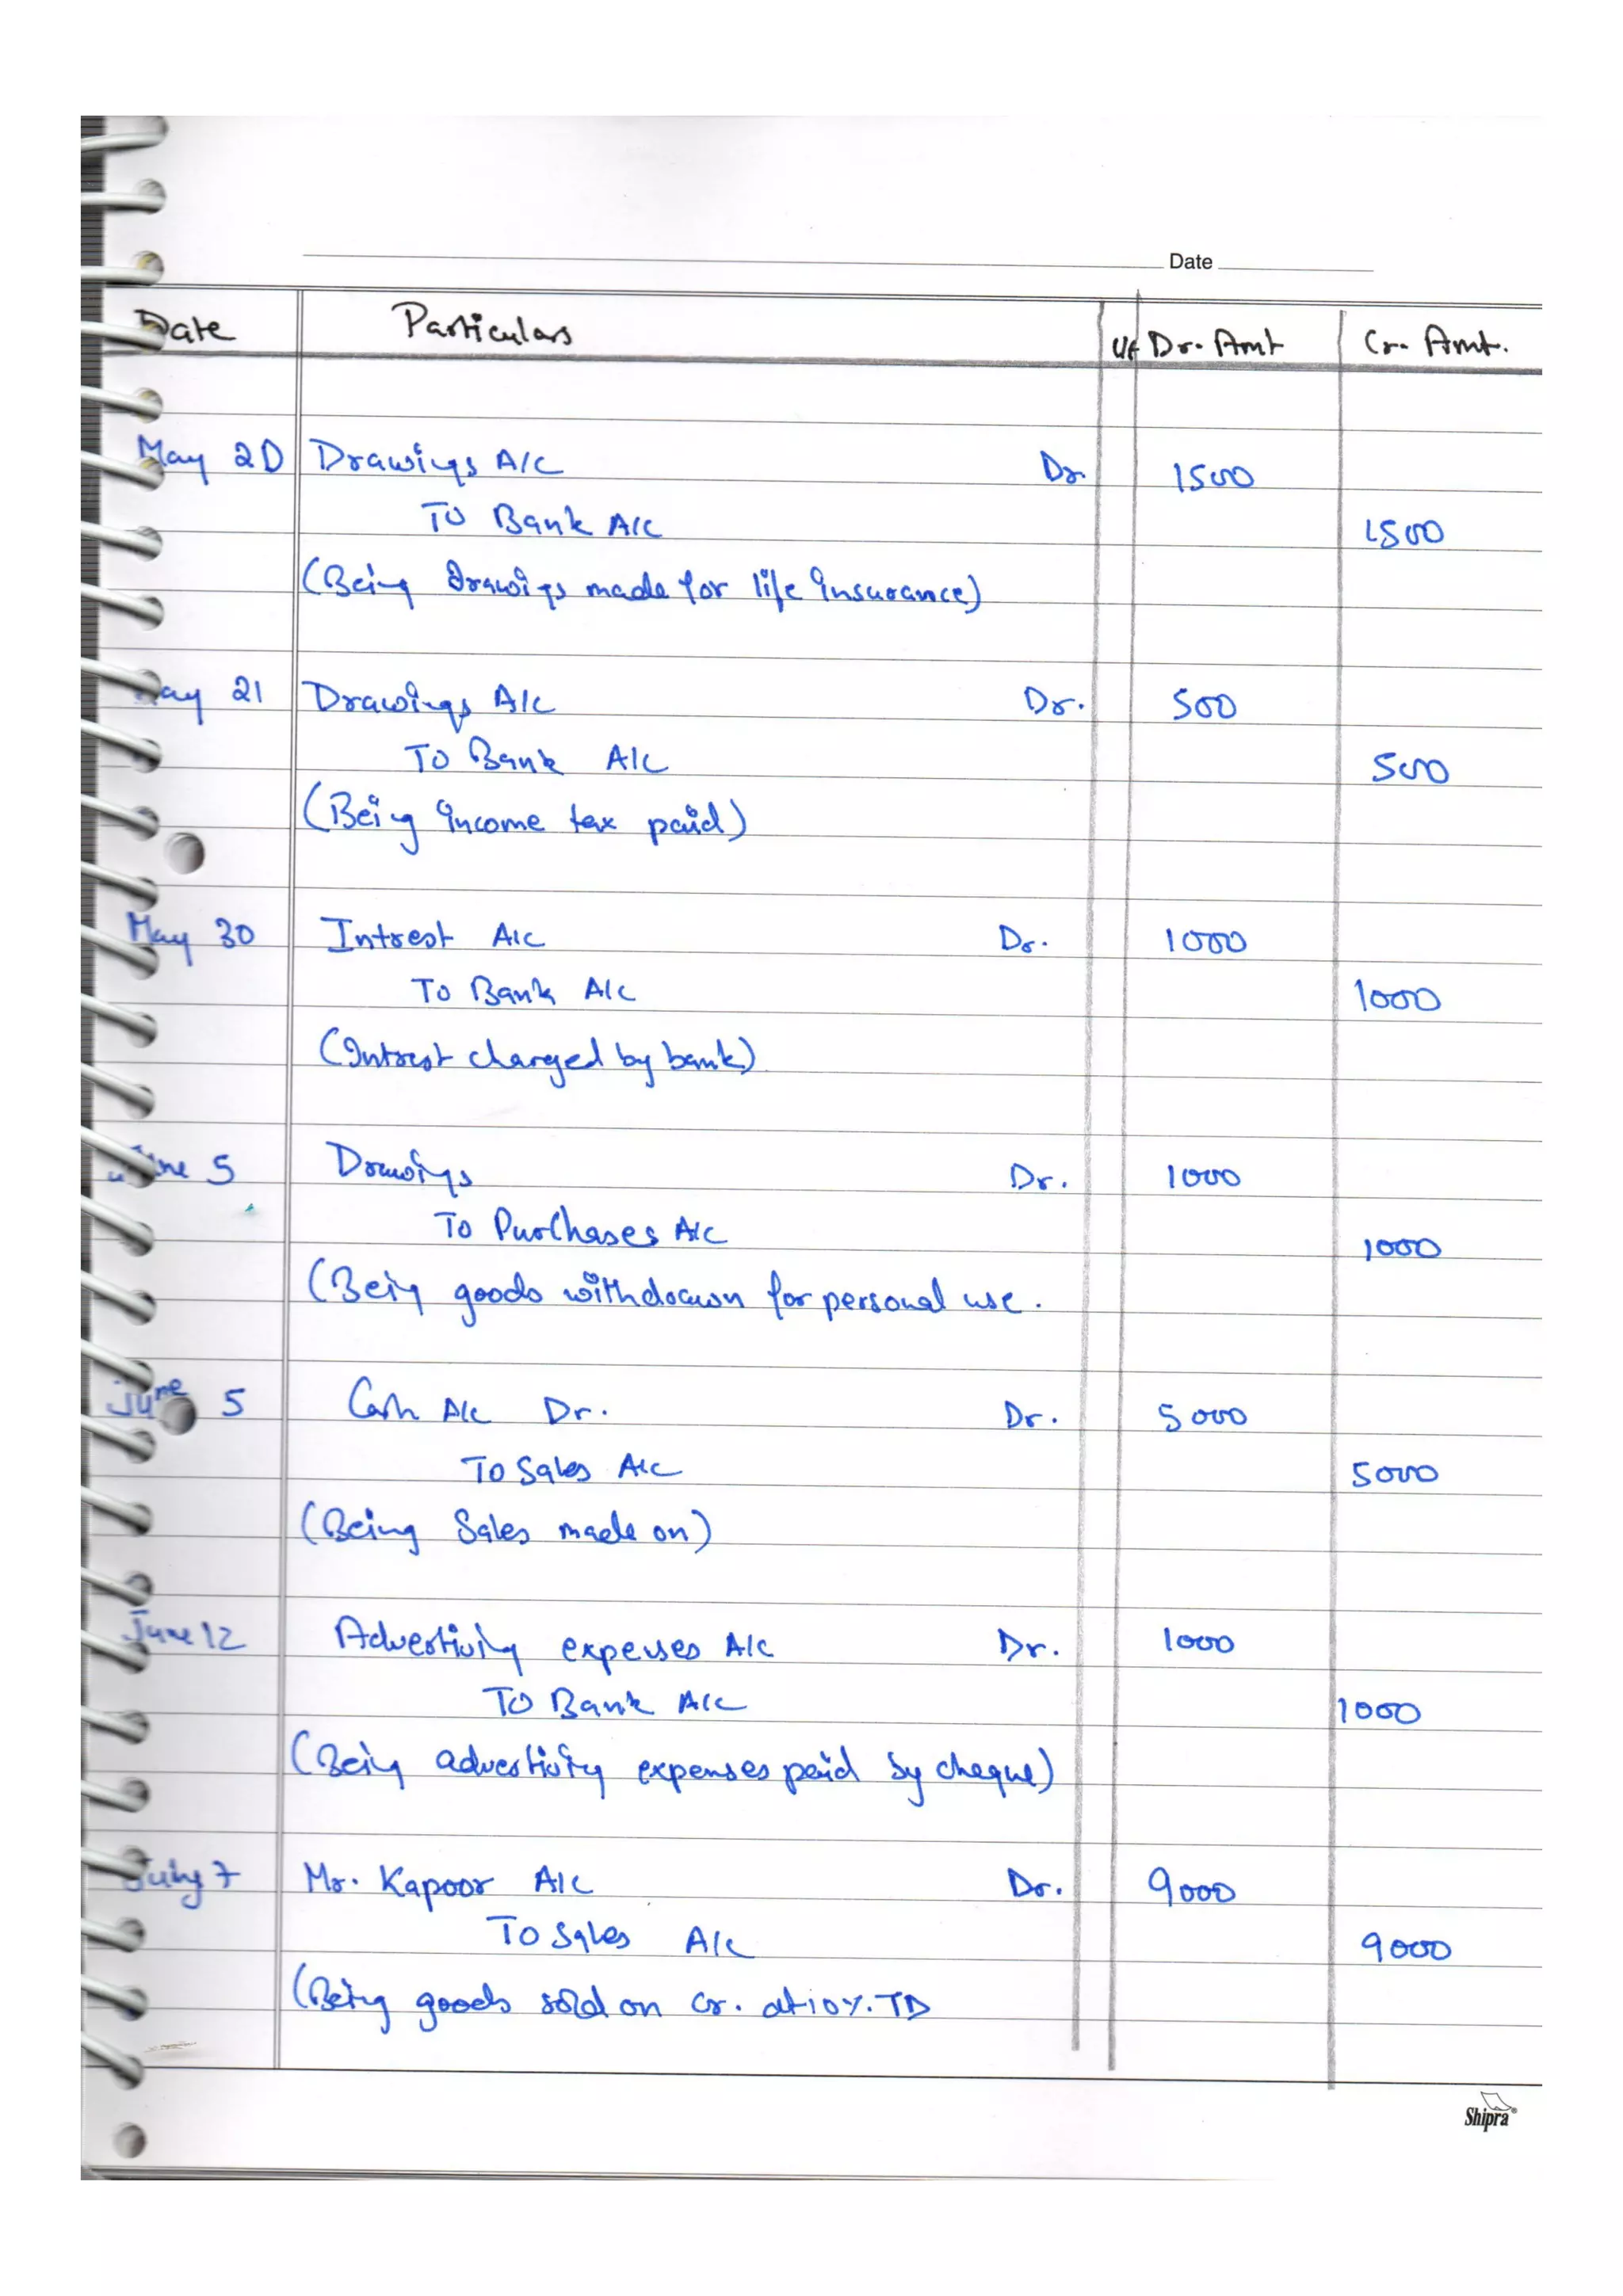 Date
Date Particulars L/f Dr. Amt Cr. Amt.
May 20 Drawings A/C Dr. 1500
To Bank A/C 1500
(Being drawings made for life insurance)
May 21 Drawings A/C Dr. 500
To Bank A/C 500
(Being income tax paid)
May 30 Intrest A/C Dr. 1000
To Bank A/C 1000
(Intrest charged by bank)
June 5 Drawings Dr. 1000
To Purchases A/C 1000
(Being goods withdrawn for personal use.
June 5 Cash A/C Dr. Dr. 5000
To Sales A/C 5000
(Being Sales made on)
June 12 Advertising expenses A/C Dr. 1000
To Bank A/C 1000
(Being advertising expenses paid by cheque)
July 7 Mr. Kapoor A/C Dr. 9000
To Sales A/C 9000
(Being goods sold on Cr. at 10%. TD
Shipra